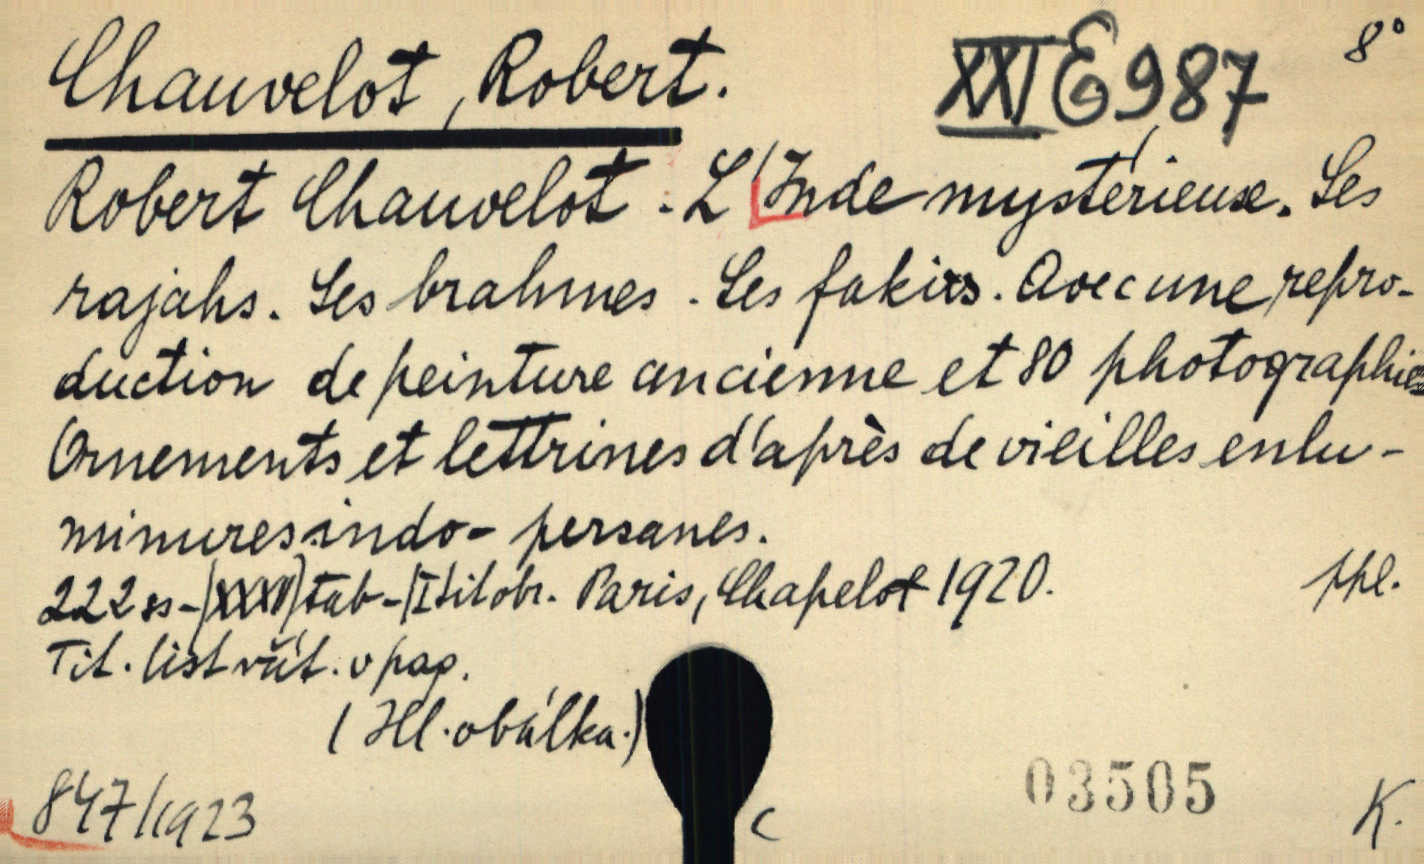 Chauvelot, Robert.
XXI E 987
8°
Robert Chauvelot. L'Inde mystérieuse. Les
rajahs. Les brahmes. Les fakirs. Avec une repro-
duction de peinture ancienne et 80 photographies
Ornements et lettrines d'après de vieilles enlu-
minures indo-persanes.
222 ss-(XXXII) tab- Paris, Chapelot 1920.
ppl.
Tit. list včít. v pag.
(Ill. obálka.)
847/1923
C
03505
K.